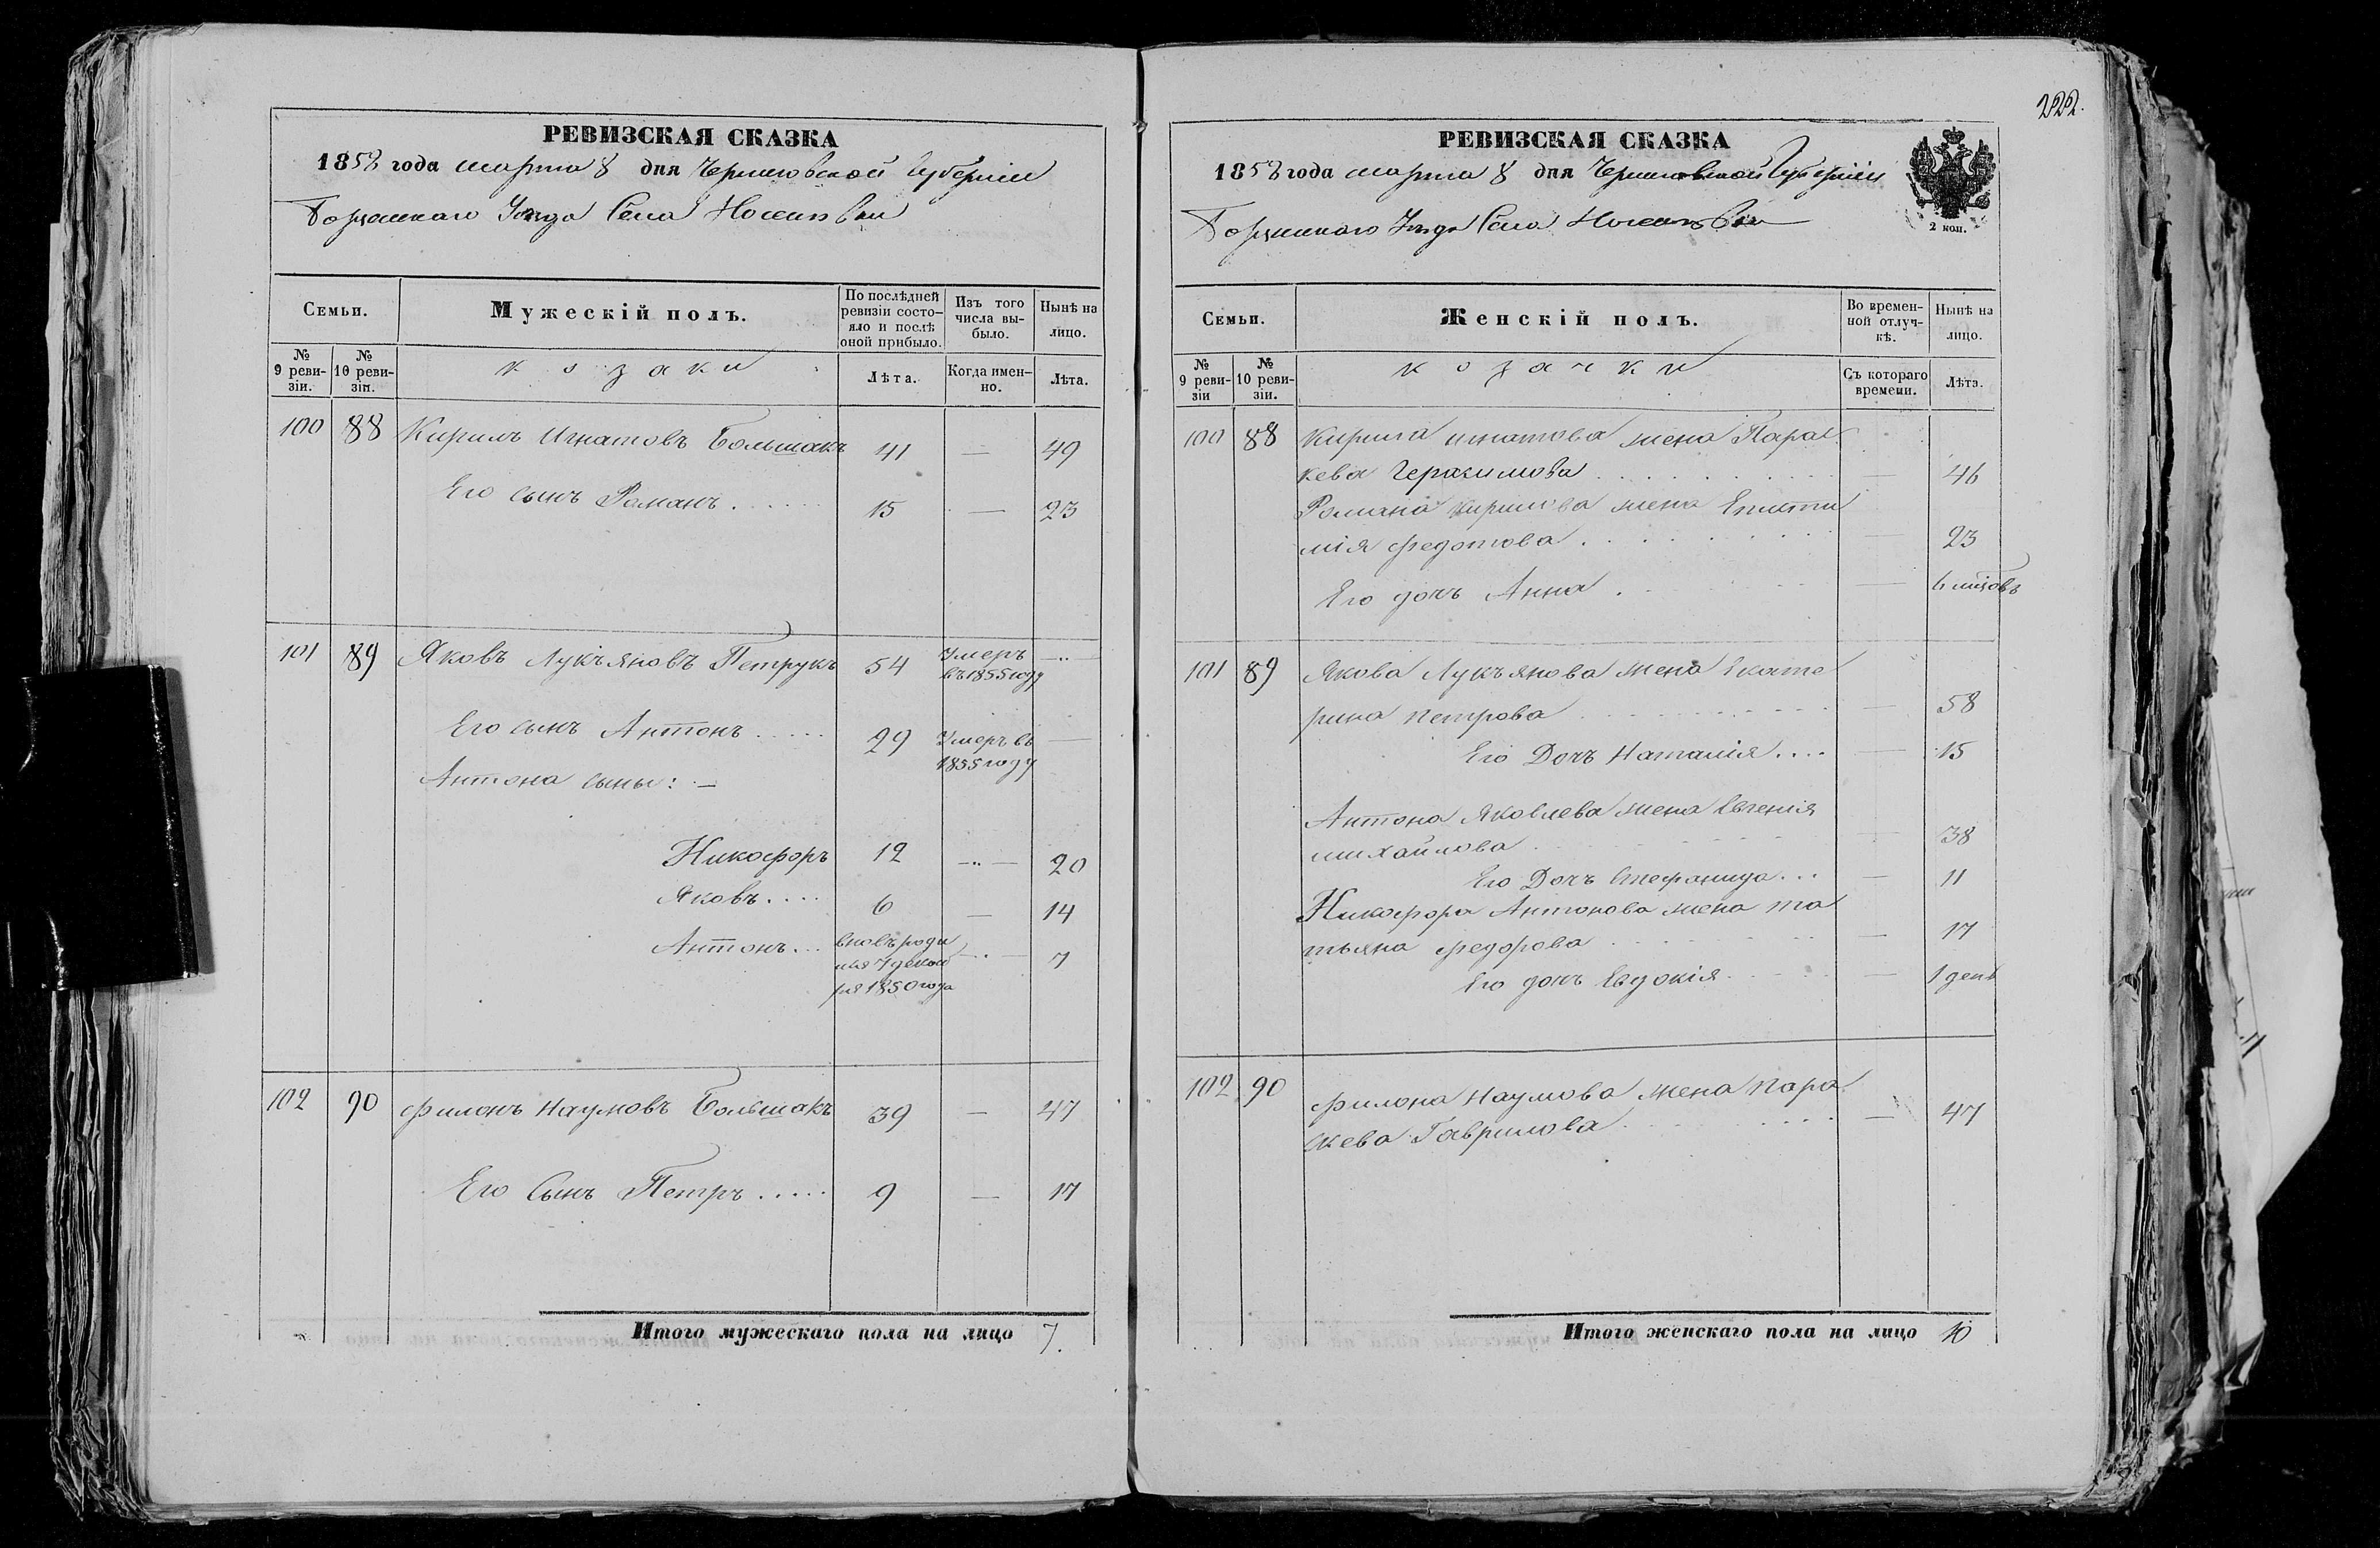 222.
РЕВИЗСКАЯ СКАЗКА
1858 года марта 8 дня Черниговской Губерніи
Борзенскаго Уезда Села
Семьи.
Мужескій полъ.
По послѣдней ревизіи состо-
яло и послѣ
оной прибыло.
Изъ того
числа вы-
было.
Нынѣ на
лицо.
№
9 реви-
зіи.
№
10 реви-
зіи.
козаки
Лѣта.
Когда имен-
но.
Лѣта.
100 88 Кирилъ Игнатовъ Большакъ 41 — 49
Его сынъ Романъ..... 15 — 23
101 89 Яковъ Лукъяновъ Петрукъ 54 Умеръ
въ 1855 году
Его сынъ Антонъ..... 29 Умеръ въ
1855 году —
Антона сыны: —
Никофоръ 12 — 20
Яковъ.... 6 — 14
Антонъ... вновь роди
лся 7 декаб
ря 1850 года — 7
102 90 Филонъ Наумовъ Большакъ 39 — 47
Его Сынъ Петръ..... 9 — 17
Итого мужескаго пола на лицо 7.
РЕВИЗСКАЯ СКАЗКА
1858 года марта 8 дня Черниговской Губерніи
Борзенскаго Уезда Села
2 коп.
Семьи.
Женскій полъ.
Во времен-
ной отлуч-
кѣ.
Нынѣ на
лицо.
№
9 реви-
зіи
№
10 реви-
зіи.
козачки
Съ котораго
времени.
Лѣта.
100 88 Кирила игнатова жена Парас
кева Герасимова — 46
Романа кирилова жена Еписти
мія федотова — 23
Его дочъ Анна — 6 мцовъ
101 89 Якова Лукъянова жена Екате
рина петрова — 58
Его Дочъ Наталія.... — 15
Антона Яковлева жена Евгенія
михайлова — 38
Его Дочъ Стефанида... — 11
Никофора Антонова жена та
тьяна федорова — 17
Его дочъ Евдокія — 1 день
102 90 филона Наумова жена пара
скева Гаврилова — 47
Итого женскаго пола на лицо 10